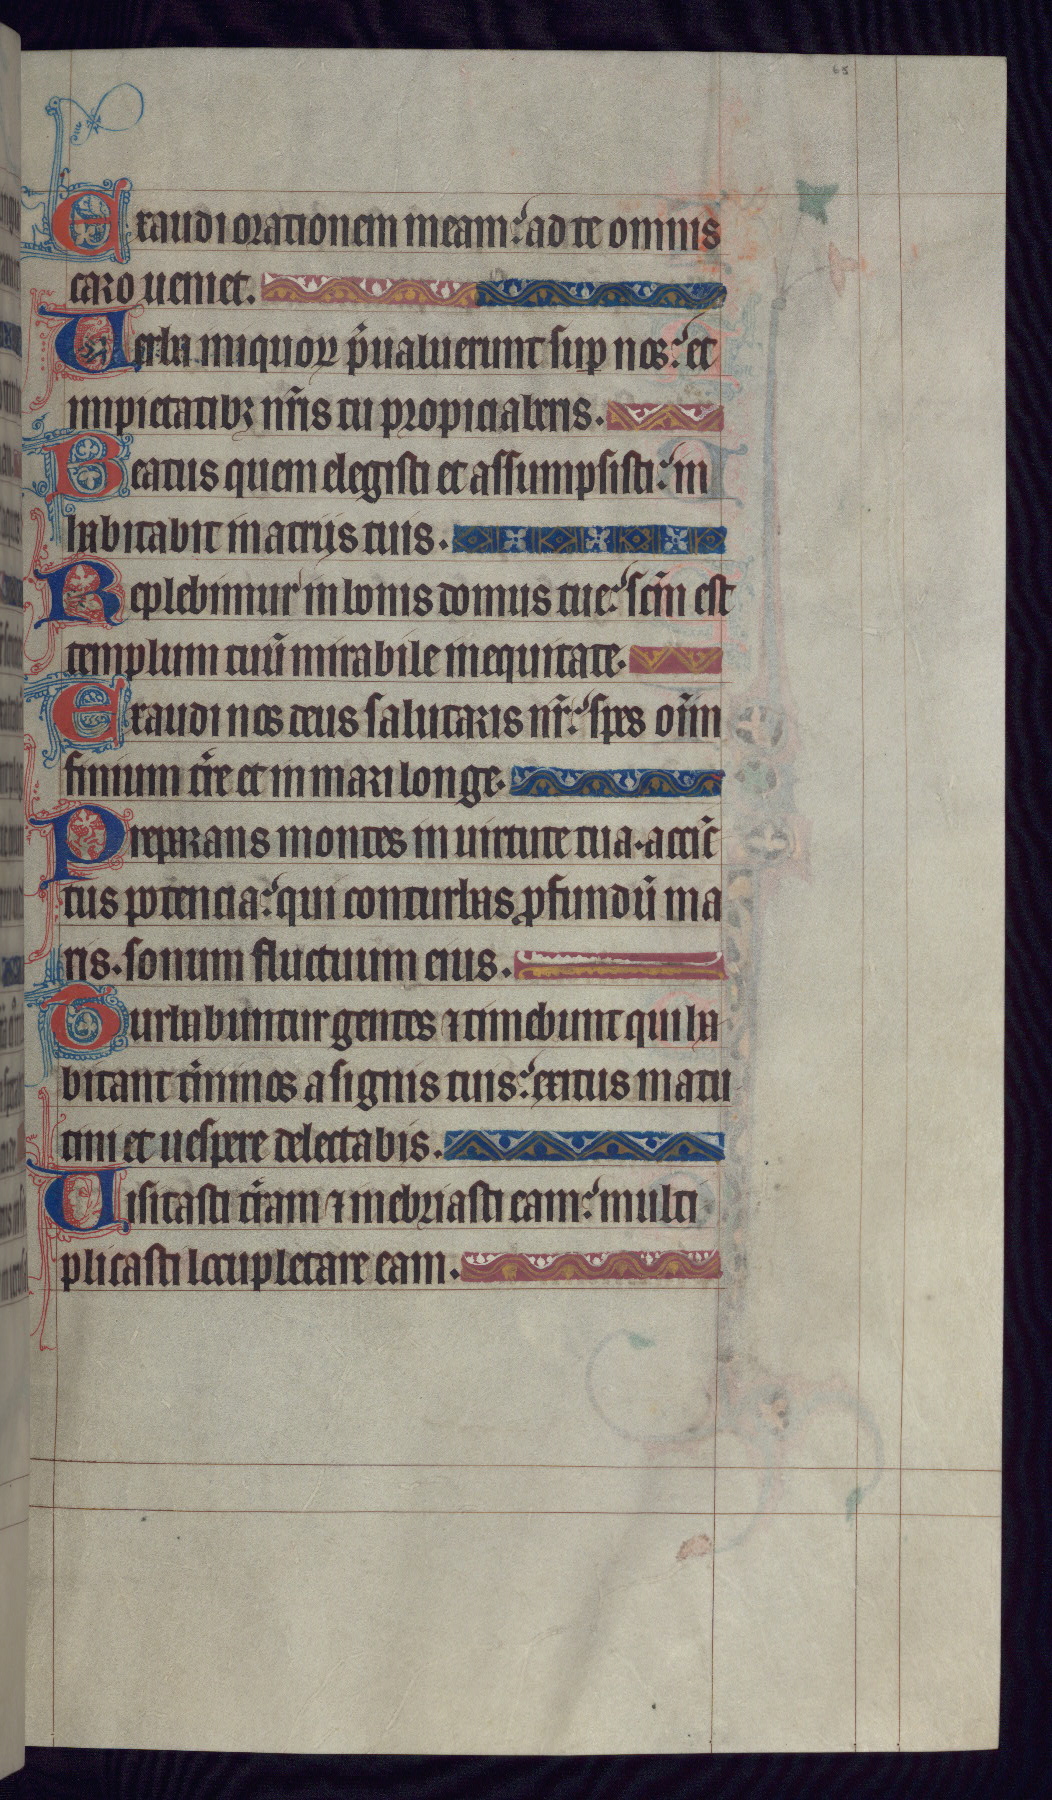 65
Exaudi orationem meam: ad te omnis
caro ueniet.
Uerba iniquoꝝ p̄ualuerunt suꝑ nos: et
impietatibꝫ nr̄is tu propiciaberis.
Beatus quem elegisti et assumpsisti: in
habitabit in atriis tuis.
Replebimur in bonis domus tue: scm̄ est
templum tuū mirabile in equitate.
Exaudi nos deus salutaris nr̄: spes oīm
finium tr̄e et in mari longe.
Preparans montes in uirtute tua. accic̄
tus potencia: qui conturbas ꝓfundū ma
ris. sonum fluctuum eius.
Turbabuntur gentes ⁊ timebunt qui ha
bitant tr̄minos a signis tuis: exitus matu
tini et uespere delectabis.
Uisitasti tr̄am ⁊ inebriasti eam: multi
plicasti locupletare eam.